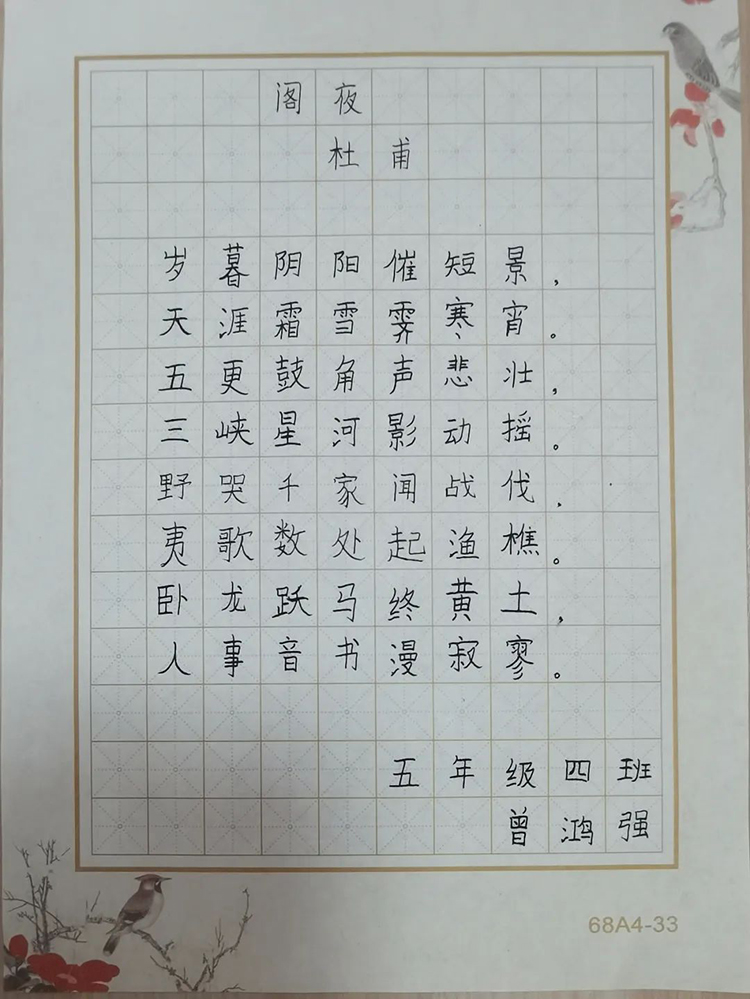 阁夜
杜甫
岁暮阴阳催短景，
天涯霜雪霁寒宵。
五更鼓角声悲壮，
三峡星河影动摇。
野哭千家闻战伐，
夷歌数处起渔樵。
卧龙跃马终黄土，
人事音书漫寂寥。
五年级四班
曾鸿强
68A4-33